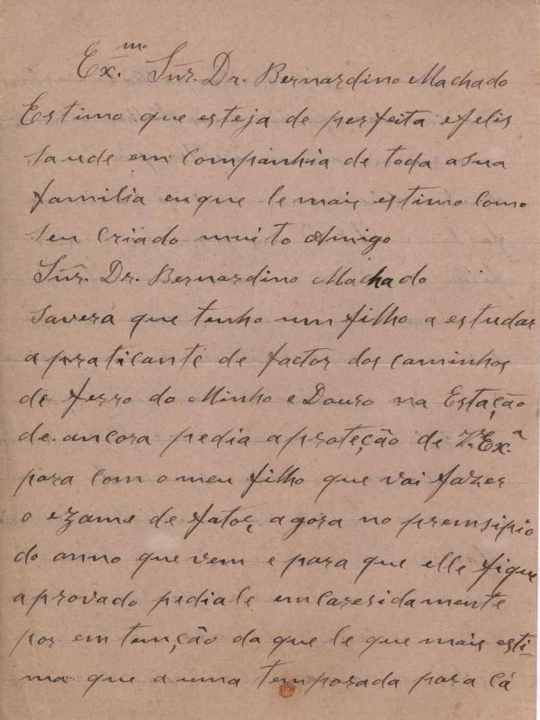 Ex.mo Snr. Dr. Bernardino Machado
Estimo que esteja de perfeita efelis
saude em companhia de toda asua
familia euque le mais estimo como
seu criado muito Amigo
Snr. Dr. Bernardino Machado
Saverá que tenho um filho a estudar
apraticante de factor dos caminhos
de ferro do Minho e Douro na Estação
de ancora pedia aproteção de V.Ex.a
para com o meu filho que vai fazer
o ezame de fator, agora no premsipio
do anno que vem e para que elle fique
aprovado pediale emcaresidamente
por em tenção da que le que mais esti-
ma que a uma temporada para cá